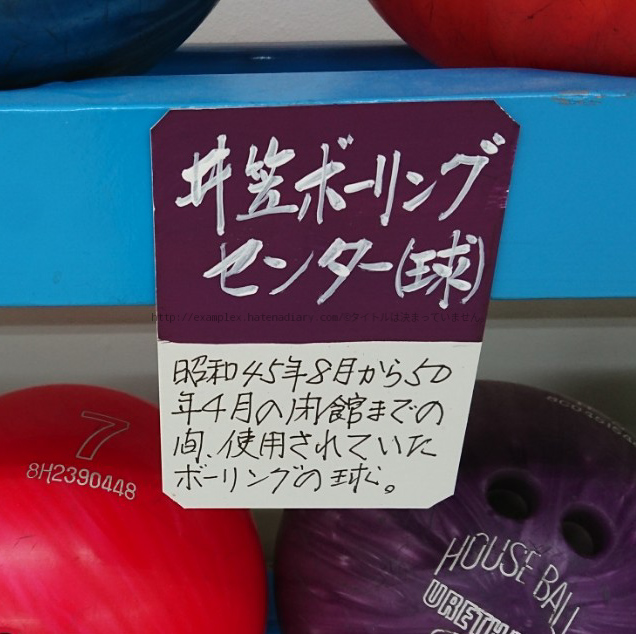 井笠ボーリング
センター(球)
http://examplex.hatenadiary.com/※タイトルは決まっていません。
昭和45年8月から50
年4月の閉館までの
間、使用されていた
ボーリングの球。
7
8H2390448
HOUSE BALL